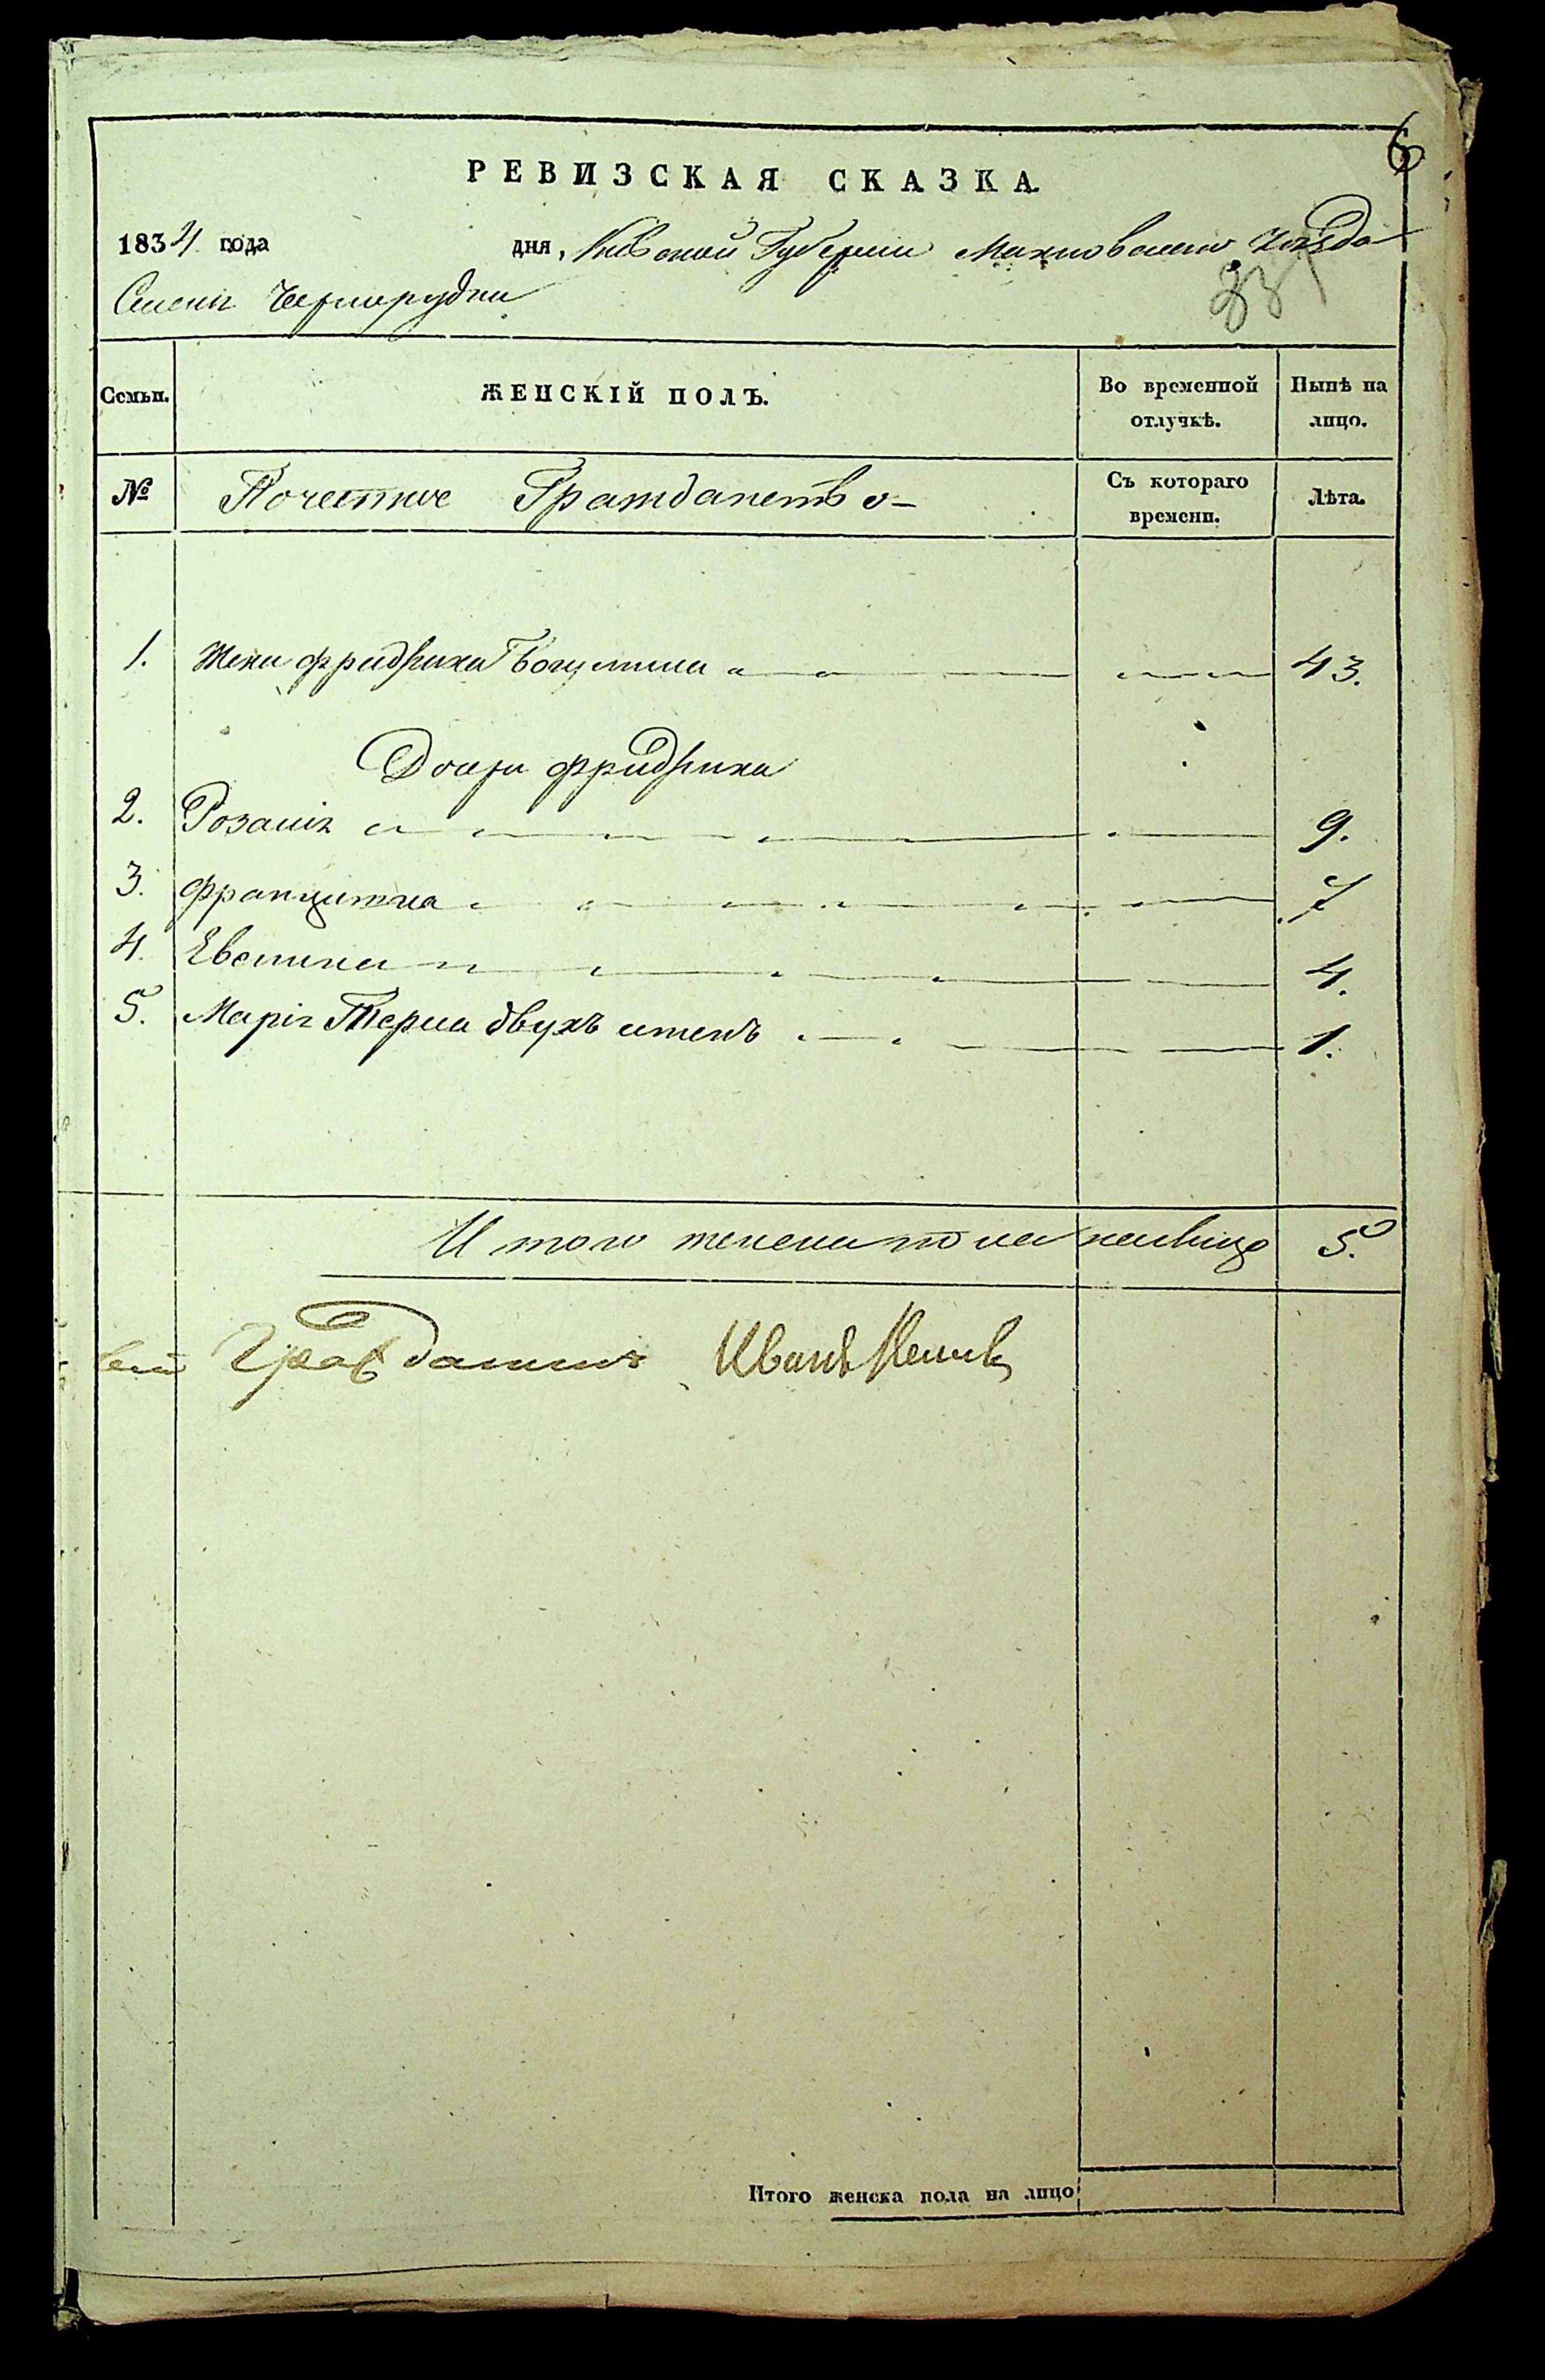 6
РЕВИЗСКАЯ СКАЗКА
1834 года дня, Киевской Губернiи Махновскаго Уѣзда
Чернорудки
Семьи. ЖЕНСКІЙ ПОЛЪ. Во временной отлучкѣ. Нынѣ на лицо.
№ Почетное Гражданство Съ котораго времени. Лѣта.
1. Жена Фридриха Богумила 43.
Дочери Фридриха
2. Розалія 9.
3. Францишка 7
4. Евелина 4.
5. Марія Тереза двухъ именъ 1.
Итого женска пола на лицо 5.
Гражданинъ Иванъ
Итого женска пола на лицо